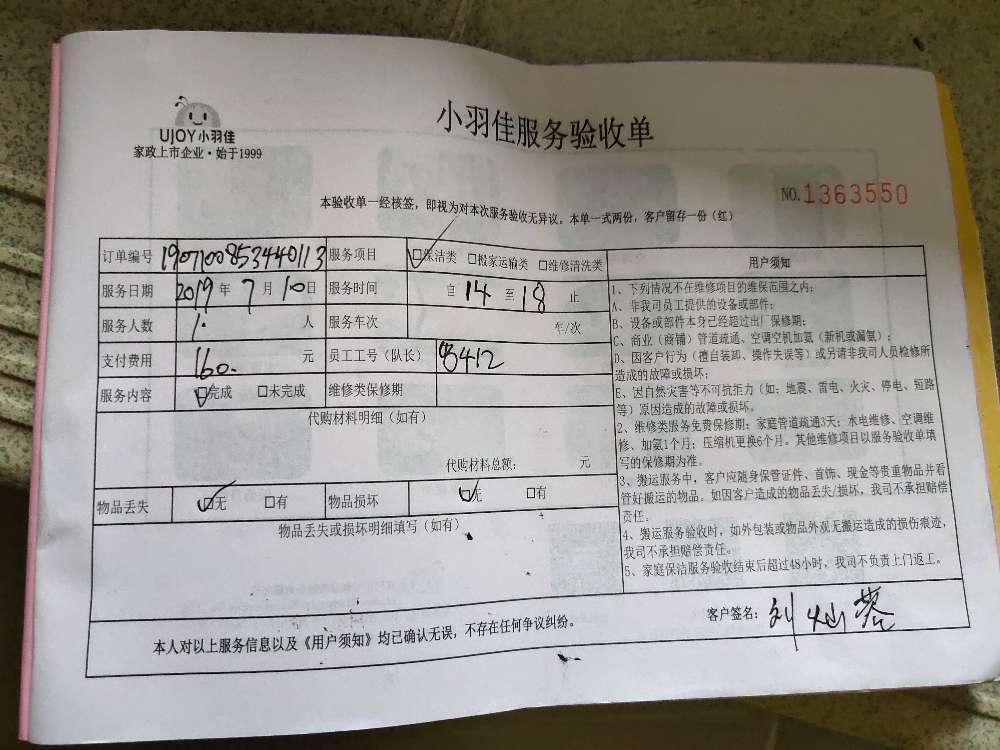 UJOY小羽佳
家政上市企业·始于1999
小羽佳服务验收单
NO.1363550
本验收单一经核签，即视为对本次服务验收无异议。本单一式两份，客户留存一份（红）
订单编号 1907100853440113 服务项目 □保洁类 □搬家运输类 □维修清洗类
服务日期 2019年7月10日 服务时间 自14至18止
服务人数 1. 人 服务车次 年/次
支付费用 160. 元 员工工号（队长） 03412
服务内容 □完成 □未完成 维修类保修期
代购材料明细（如有）
代购材料总额： 元
物品丢失 □无 □有 物品损坏 □无 □有
物品丢失或损坏明细填写（如有）
用户须知
1、下列情况不在维修项目的维保范围之内：
A、非我司员工提供的设备或部件；
B、设备或部件本身已经超过出厂保修期；
C、商业（商铺）管道疏通、空调空机加氨（新机或漏氨）；
D、因客户行为（擅自装卸、操作失误等）或另请非我司人员检修所
造成的故障或损坏；
E、因自然灾害等不可抗拒力（如：地震、雷电、火灾、停电、短路
等）原因造成的故障或损坏。
2、维修类服务免费保修期：家庭管道疏通3天；水电维修、空调维
修、加氨1个月；压缩机更换6个月。其他维修项目以服务验收单填
写的保修期为准。
3、搬运服务中，客户应随身保管证件、首饰、现金等贵重物品并看
管好搬运的物品。如因客户造成的物品丢失/损坏，我司不承担赔偿
责任。
4、搬运服务验收时，如外包装或物品外观无搬运造成的损伤痕迹，
我司不承担赔偿责任。
5、家庭保洁服务验收结束后超过48小时，我司不负责上门返工。
本人对以上服务信息以及《用户须知》均已确认无误，不存在任何争议纠纷。
客户签名：刘灿蓉